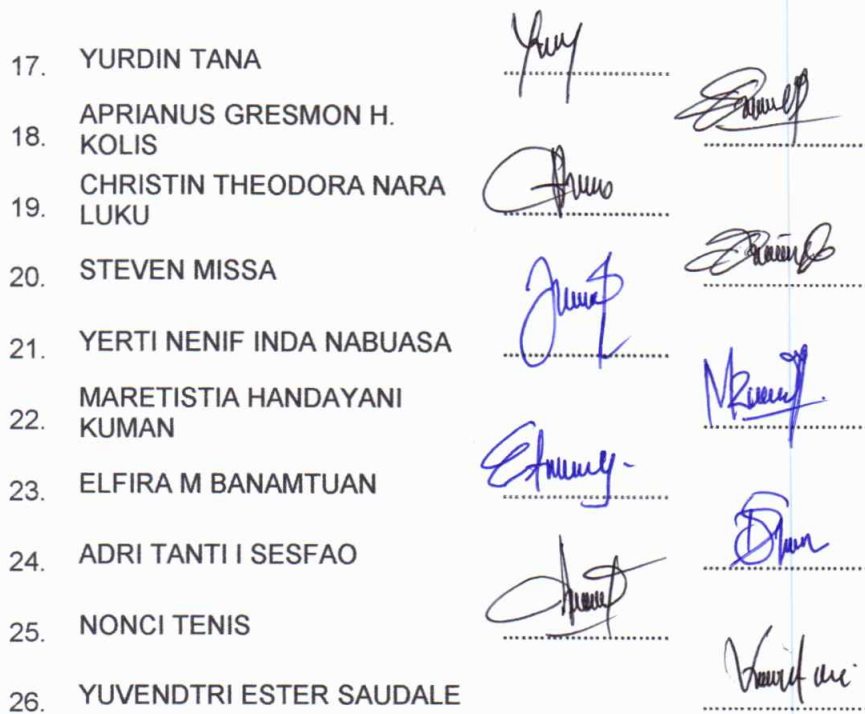 17. YURDIN TANA
18. APRIANUS GRESMON H.
KOLIS
19. CHRISTIN THEODORA NARA
LUKU
20. STEVEN MISSA
21. YERTI NENIF INDA NABUASA
22. MARETISTIA HANDAYANI
KUMAN
23. ELFIRA M BANAMTUAN
24. ADRI TANTI I SESFAO
25. NONCI TENIS
26. YUVENDTRI ESTER SAUDALE